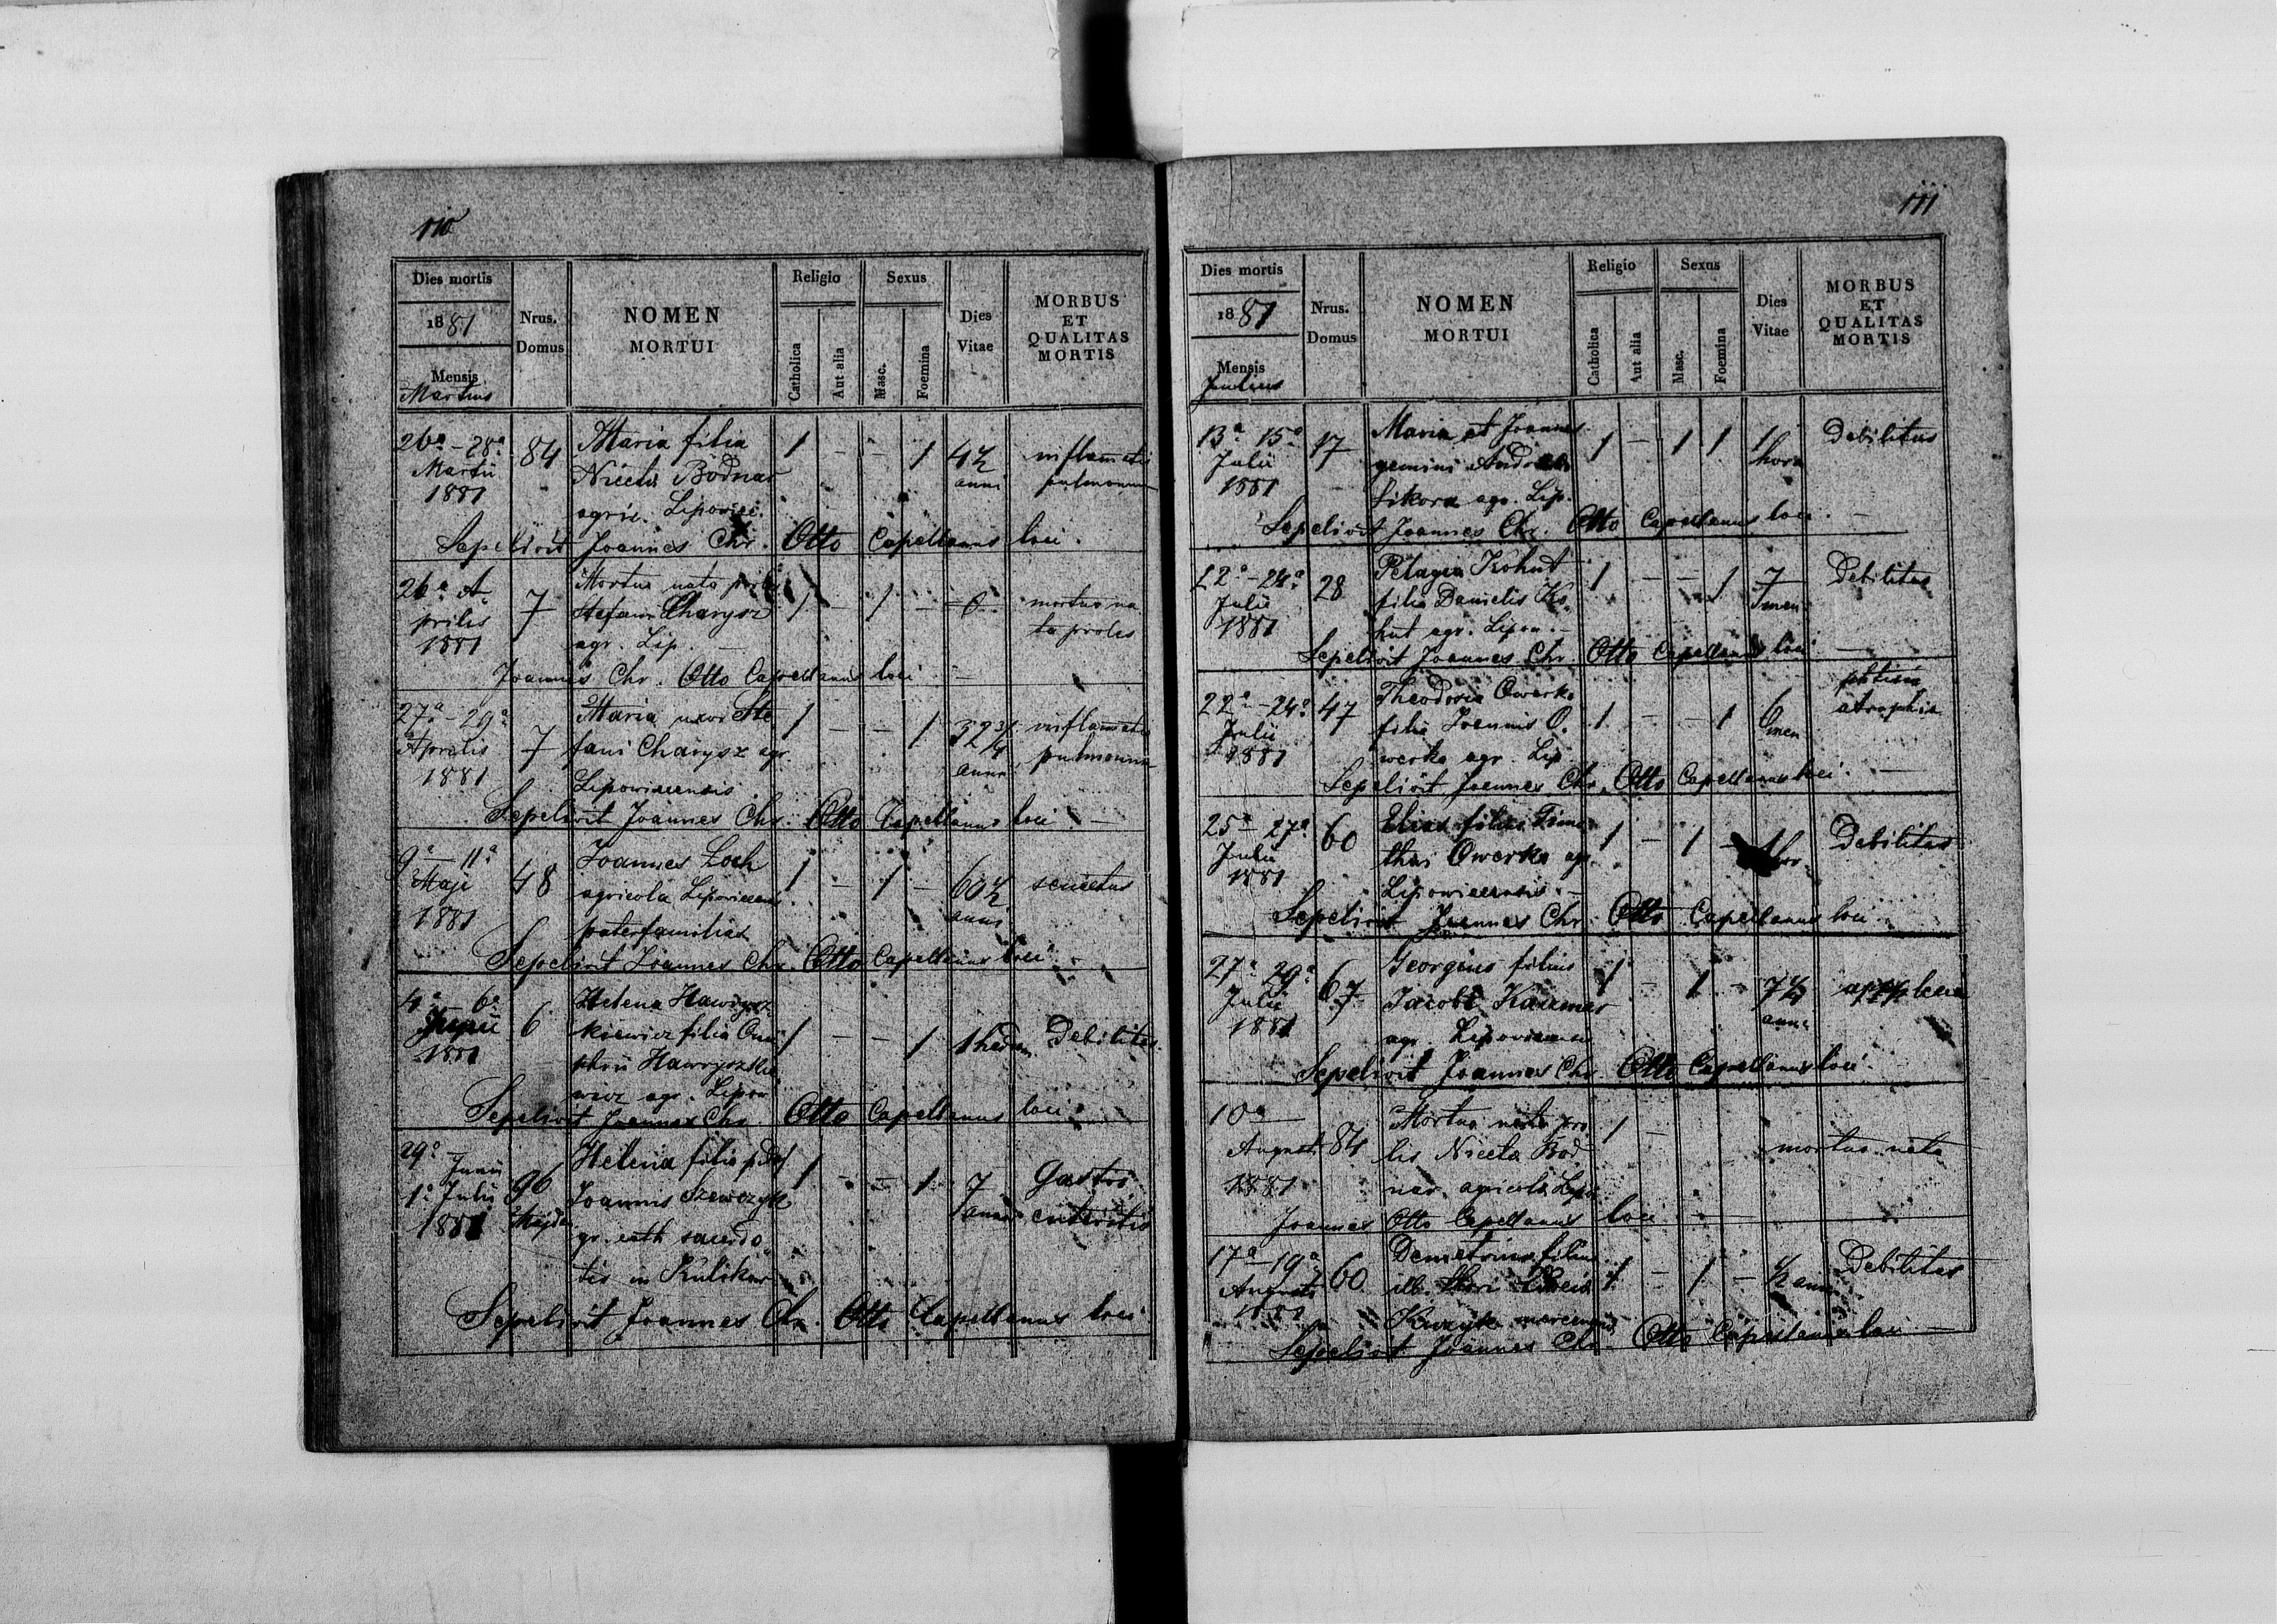 110
Dies mortis
1881
Mensis
Martius
Nrus.
Domus
NOMEN
MORTUI
Religio
Catholica
Aut alia
Sexus
Masc.
Foemina
Dies
Vitae
MORBUS
ET
QUALITAS
MORTIS
26a - 28a
Martii
1881
84
Maria filia
Nicetae Bodnar
agric. Lipowiec.
1 - - 1
4½
anni
inflamatio
pulmonum
Sepelivit Joannes Chr. Otto Capellanus loci.
26a A
prilis
1881
7
Mortuo nata proles
Stefani Charysz
agr. Lip. -
1 - 1 - 0
mortuo na
ta proles
Joannes Chr. Otto Capellanus loci -
27a - 29a
Aprilis
1881
7
Maria uxor Ste
fani Charysz agr.
Lipowiecensis
1 - - 1
32¾
anni
inflamatio
pulmonum
Sepelivit Joannes Chr. Otto Capellanus loci. -
9a - 11a
Maji
1881
48
Joannes Loch
agricola Lipowiecensis
paterfamilias
1 - 1 -
60½
anni
senectus
Sepelivit Joannes Chr. Otto Capellanus loci. -
4a - 6a
Junii
1881
6
Helena Hawrysz
kiewicz filia Onu
phrii Hawryszkie
wicz agr. Lipow
1 - - 1
1 hedom
Debilitas
Sepelivit Joannes Chr. Otto Capellanus loci.
29a -
Junii
1a Julii
1881
96
Majdan
Helena filia
Joannis Szewczyk
gr. cath sacerdo
tis in Kulikow
1 - - 1
7
anni
Gastro
enteritis
Sepelivit Joannes Chr. Otto Capellanus loci
111
Dies mortis
1881
Mensis
Julius
Nrus.
Domus
NOMEN
MORTUI
Religio
Catholica
Aut alia
Sexus
Masc.
Foemina
Dies
Vitae
MORBUS
ET
QUALITAS
MORTIS
13a 15a
Julii
1881
17
Maria et Joannes
gemini Andreae
Sikora agr. Lip.
1 - 1 1
1
hora
Debilitas
Sepelivit Joannes Chr. Otto Capellanus loci. -
22a - 24a
Julii
1881
28
Pelagia Kohut
filia Danielis Ko
hut agr. Lipow. -
1 - - 1
7
men
Debilitas
Sepelivit Joannes Chr. Otto Capellanus loci -
22a - 24a
Julii
1881
47
Theodora Owerko
filia Joannis O
werko agr. Lip
1 - - 1
6
men
phtisis
atrophia
Sepelivit Joannes Chr. Otto Capellanus loci. -
25a 27a
Julii
1881
60
Elias filius Timo
thei Owerko agr.
Lipowiecensis -
1 - 1 -
hor.
Debilitas
Sepelivit Joannes Chr. Otto Capellanus loci.
27a 29a
Julii
1881
67
Georgius filius
Jacobi
agr. Lipowiecensis
1 - 1 -
7½
anni
Sepelivit Joannes Chr. Otto Capellanus loci.
10a -
Augusti
1881
84
Mortuo nata pro
lis Niceta Bod
nar agricola Lipo
1 -
mortuo nata
Joannes Otto Capellanus loci -
17a - 19a
Augusti
1881
60
Demetrius filius
1 - 1 -
½ anni
Debilitas
Sepelivit Joannes Chr. Otto Capellanus loci -